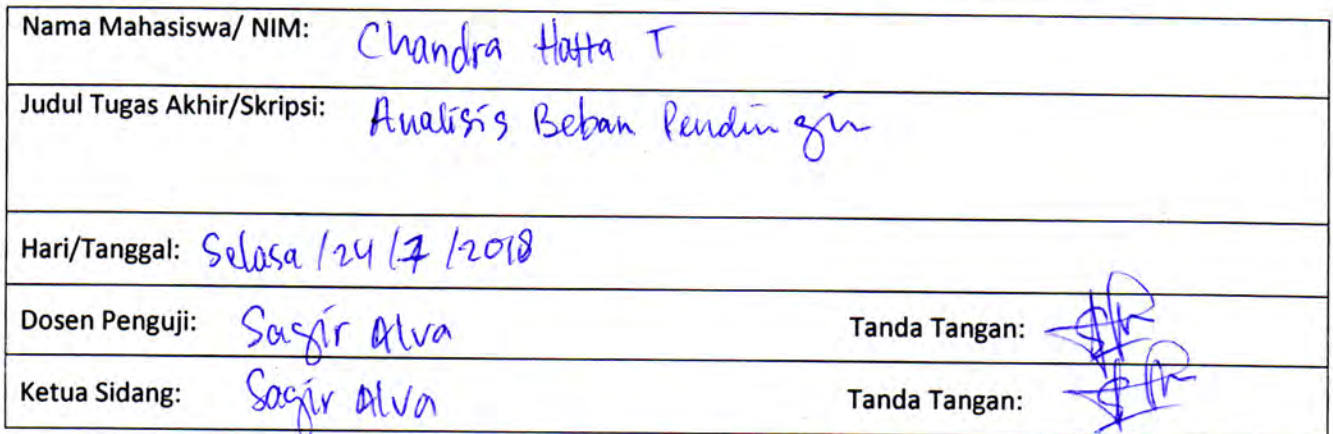 Nama Mahasiswa/ NIM: Chandra Hatta T
Judul Tugas Akhir/Skripsi: Analisis Beban Pendingin
Hari/Tanggal: Selasa /24 /7 /2018
Dosen Penguji: Sagir Alva Tanda Tangan:
Ketua Sidang: Sagir Alva Tanda Tangan: